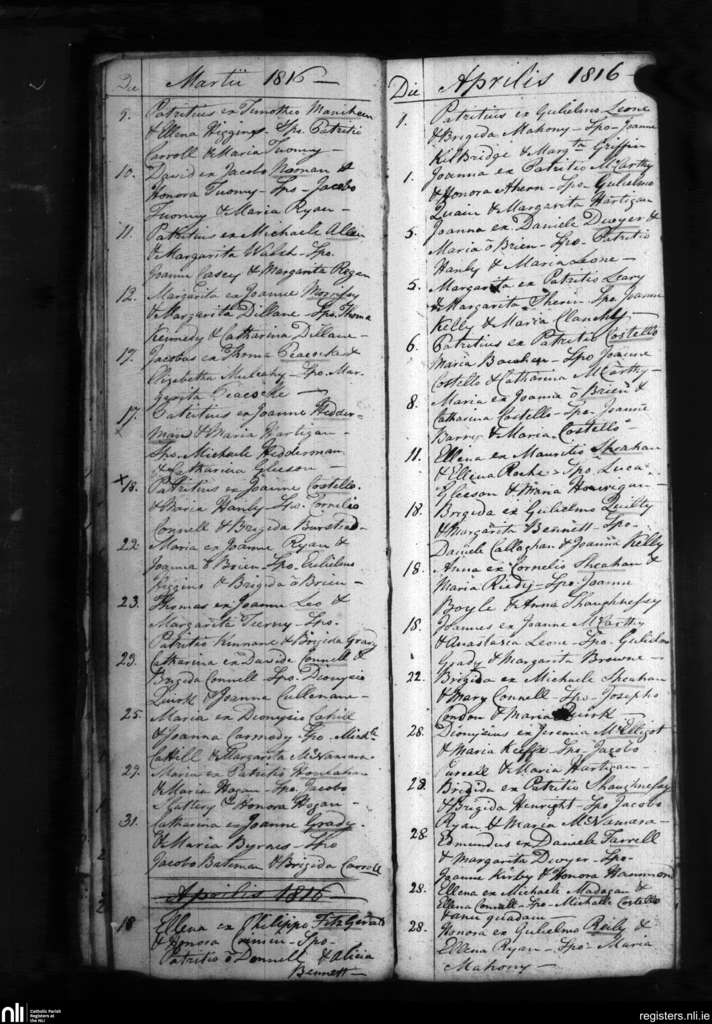 Die Martii 1816 —
9. Patritius ex Timotheo Manihan
& Ellena Higgins. Spo. Patritio
Carroll & Maria Tuomy —
10. David ex Jacobo Noonan &
Honora Tuomy — Spo — Jacobo
Tuomy & Maria Ryan —
11. Patritius ex Michaele Allen
& Margarita Walsh — Spo.
Joanne Casey & Margarita Regan
12. Margarita ex Joanne
& Margarita Dillane — Spo. Thoma
Kennedy & Catharina Dillane —
17. Jacobus ex Thoma Peacocke &
Elizabetha Mulcahy — Spo. Mar-
garita Peacocke —
17. Patritius ex Joanne Hedder-
man & Maria Hartigan —
Spo. Michaele Hedderman
& Catharina Gleeson —
x 18. Patritius ex Joanne Costello
& Maria Hanly — Spo. Cornelio
Connell & Brigida
22. Maria ex Joanne Ryan &
Joanna ō Brien — Spo. Gulielmo
Higgins & Brigida ō Brien —
23. Thomas ex Joanne Leo &
Margarita Tierny — Spo.
Patritio Kinnane & Brigida Grady
23. Catharina ex Davide Connell &
Brigida Connell Spo. Dionysio
Quirk & Joanna Cullenane —
25. Maria ex Dionysio Cahill
& Joanna Carmody — Spo. Mich.
Cahill & Margarita McNamara —
29. Maria ex Patritio
& Maria Hogan — Spo. Jacobo
Slattery & Honora Hogan —
31. Catharina ex Joanne Grady
& Maria Byrnes — Spo
Jacobo Bateman & Brigida Carroll
Aprilis 1816 —
18 Ellena ex Philippo FitzGerald
& Honora — Spo —
Patritio ō Donnell & Alicia
Bennett —
Die Aprilis 1816 —
1. Patritius ex Gulielmo Leone
& Brigida Mahony — Spo — Joanne
KilBridge & Margta Griffin
1. Joanna ex Patritio McCarthy
& Honora Ahern — Spo. Gulielmo
Quain & Margarita Hartigan
5. Joanna ex Daniele Dwyer &
Maria ō Brien — Spo. Patritio
Hanly & Maria Leone —
5. Margarita ex Patritio Leary
& Margarita — Spo. Joanne
Kelly & Maria Clanchy —
6. Patritius ex Patritio Costello
Maria — Spo Joanne
Costello & Catharina McCarthy —
8. Maria ex Joanne ō Brien &
Catharina Costello — Spo — Joanne
Barry & Maria Costello —
11. Ellena ex Mauritio Sheahan
& Ellena Roche — Spo Luca
Gleeson & Maria Hourigan —
18. Brigida ex Gulielmo Quilty
& Margarita Bennett — Spo —
Daniele Callaghan & Joanna Kelly
18. Anna ex Cornelio Sheahan &
Maria Riedy — Spo. Joanne
Boyle & Anna Shaughnessy
18. Joannes ex Joanne McCarthy
& Anastasia Leone — Spo. Gulielmo
Grady & Margarita Browne —
22. Brigida ex Michaele Sheahan
& Mary Connell — Spo — Josepho
Condon & Maria Quirk
28. Dionysius ex Jeremia McElligot
& Maria Keeffe — Spo. Jacobo
Purcell & Maria Hartigan —
28. Brigida ex Patritio Shaughnessy
& Brigida Henright — Spo Jacobo
Ryan & Maria McNamara —
28. Edmundus ex Daniele Farrell
& Margarita Dwyer — Spo —
Joanne Kirby & Honora Hammond
28. Ellena ex Michaele Madagan &
Ellena Connell — Spo — Michaele Costello
& anu quadam
28. Honora ex Gulielmo Reily &
Ellena Ryan — Spo — Maria
Mahony —
nli
Catholic Parish
Registers at
the NLI
registers.nli.ie